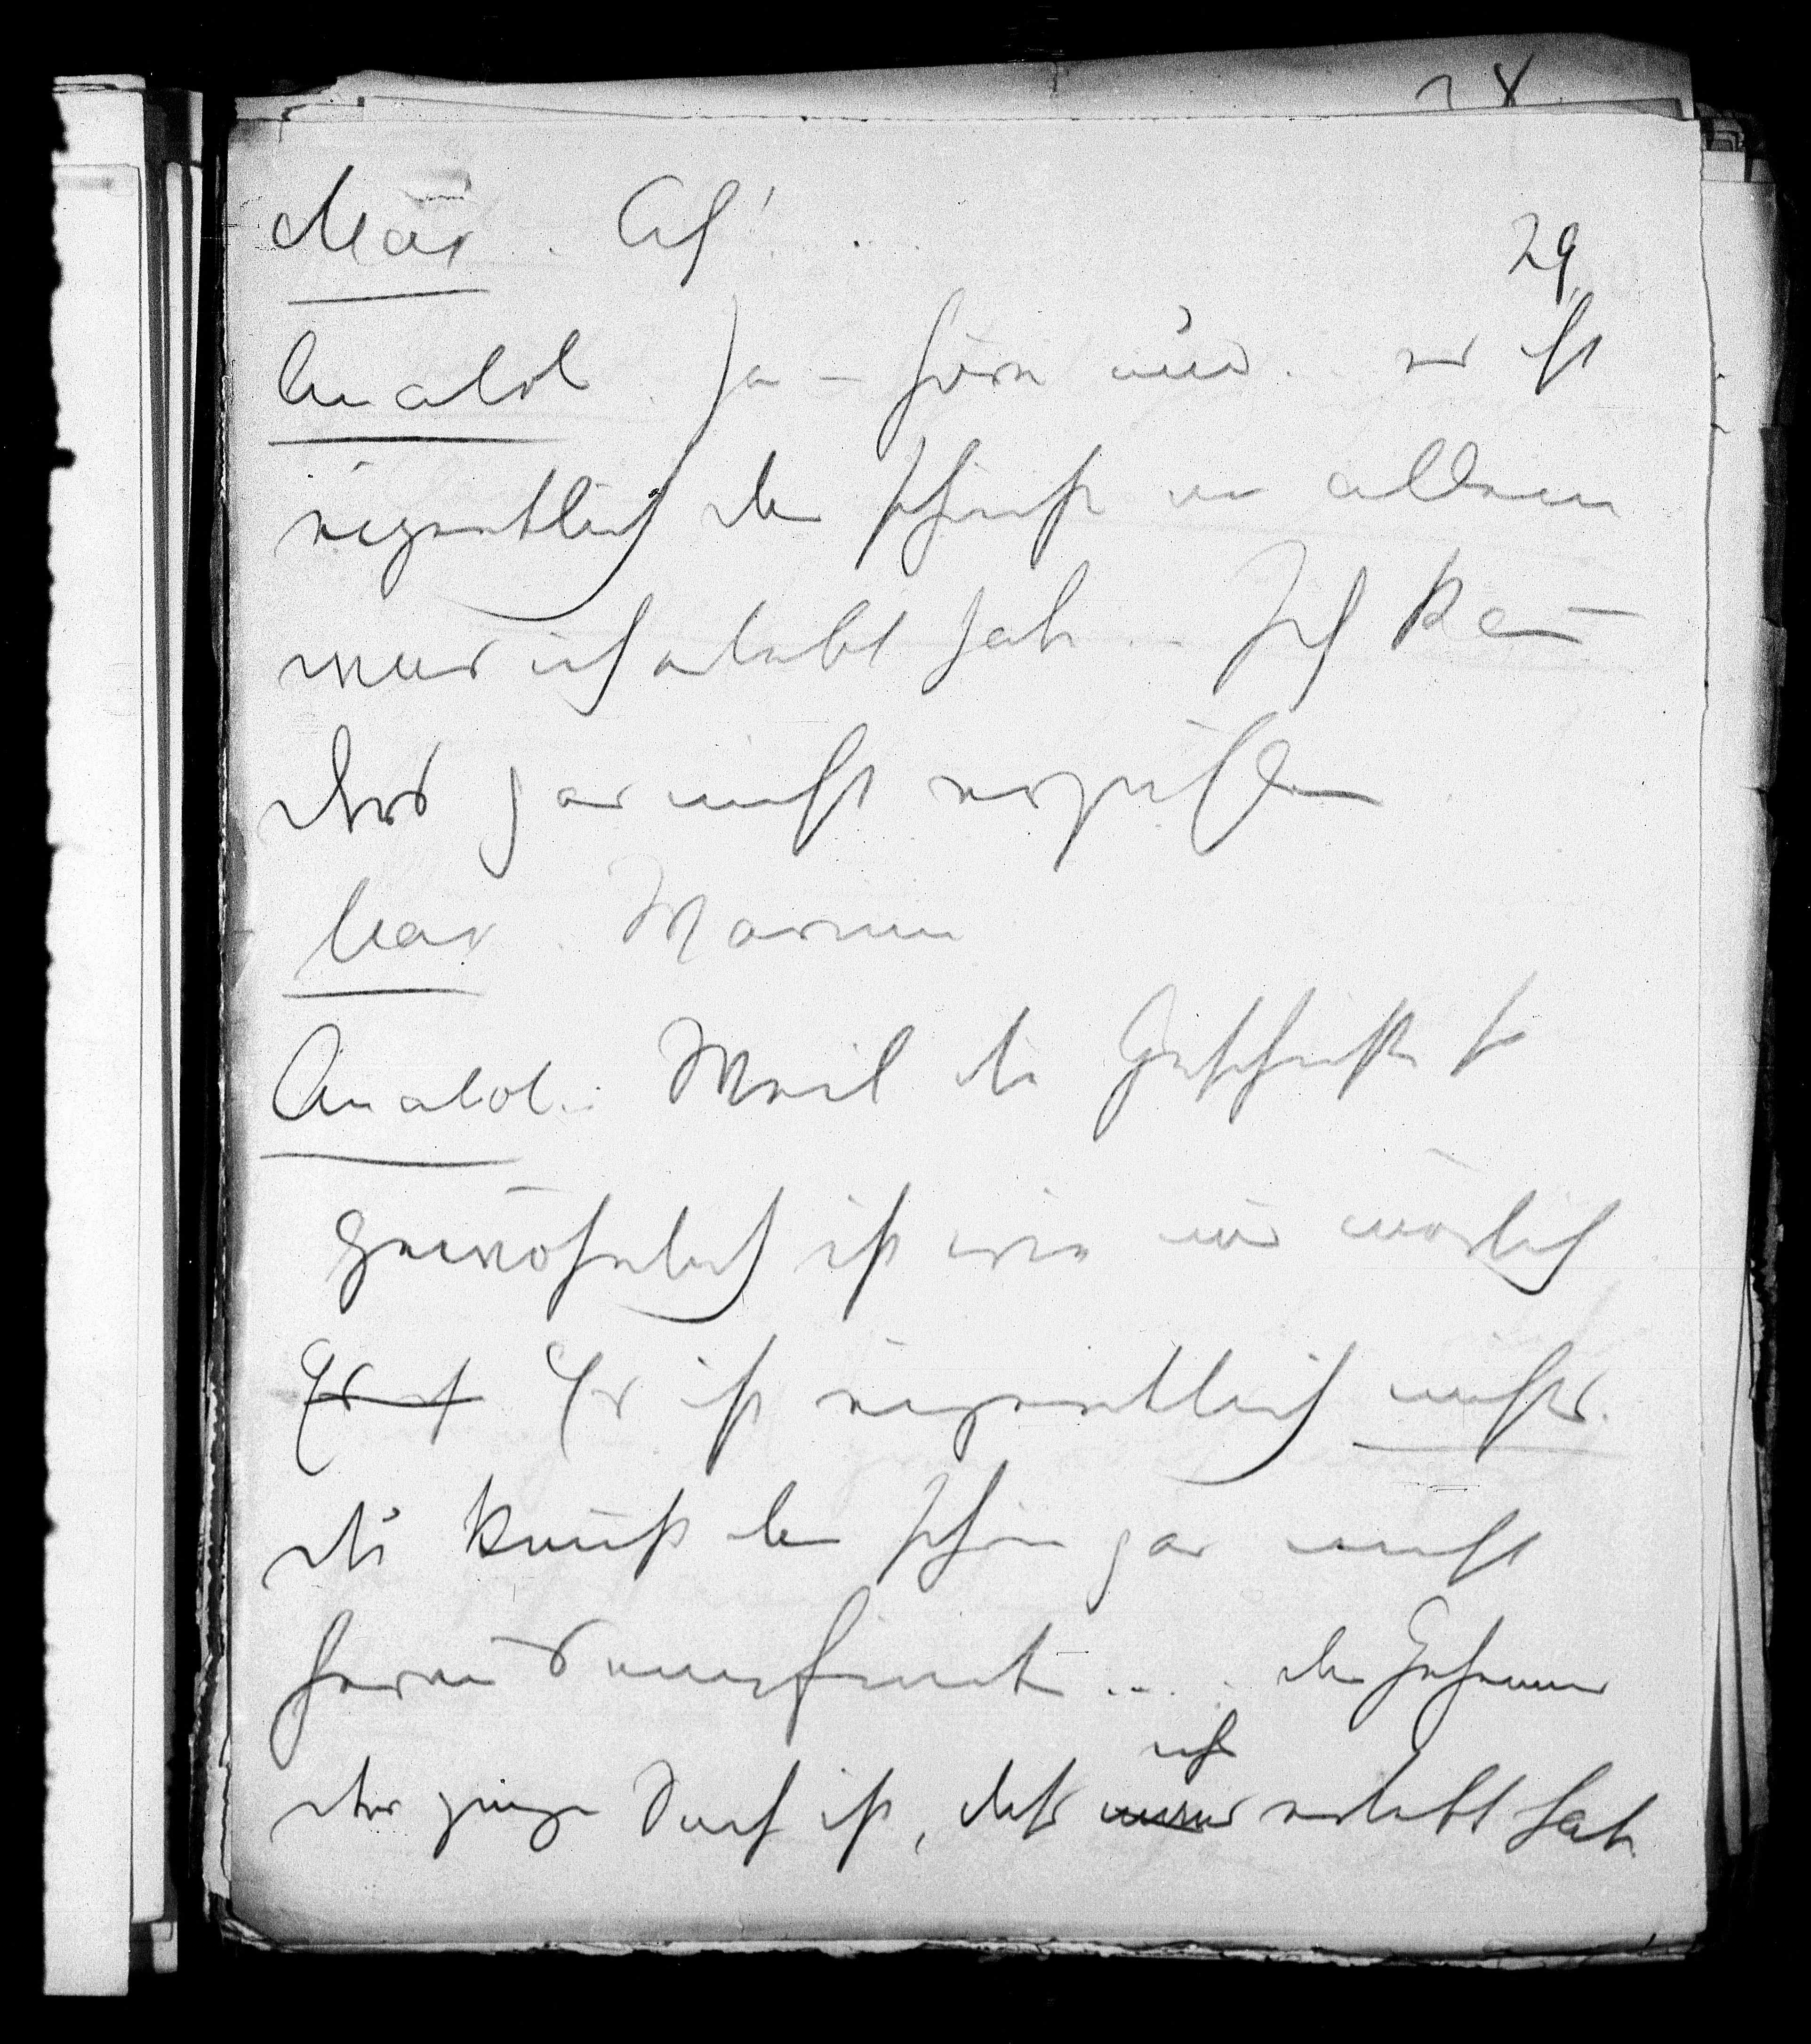 29
Max. Ah! ...
Anatol. Ja – höre nur .. es ist
eigentlich das schönste von allem
was ich erlebt habe ... Ich kan̅
dirs gar nicht erzählen
Max. Warum
Anatol. Weil die Geschichte so
gewöhnlich ist wie nur möglich
Er ist Es ist eigentlich nichts.
Du kan̅st das Schöne gar nicht
herausempfinden .... das Geheimnis
der ganzen Sache ist, daß ich erlebt habe